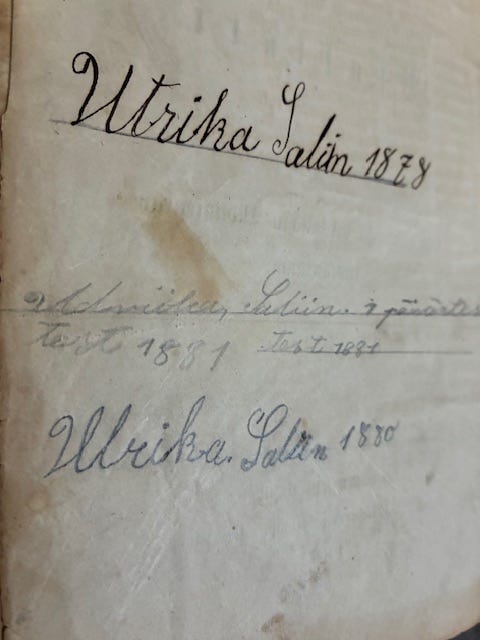 Utrika Saliin 1878
Saliin.
test 1881 test 1881
Ulrika. Saliin 1880